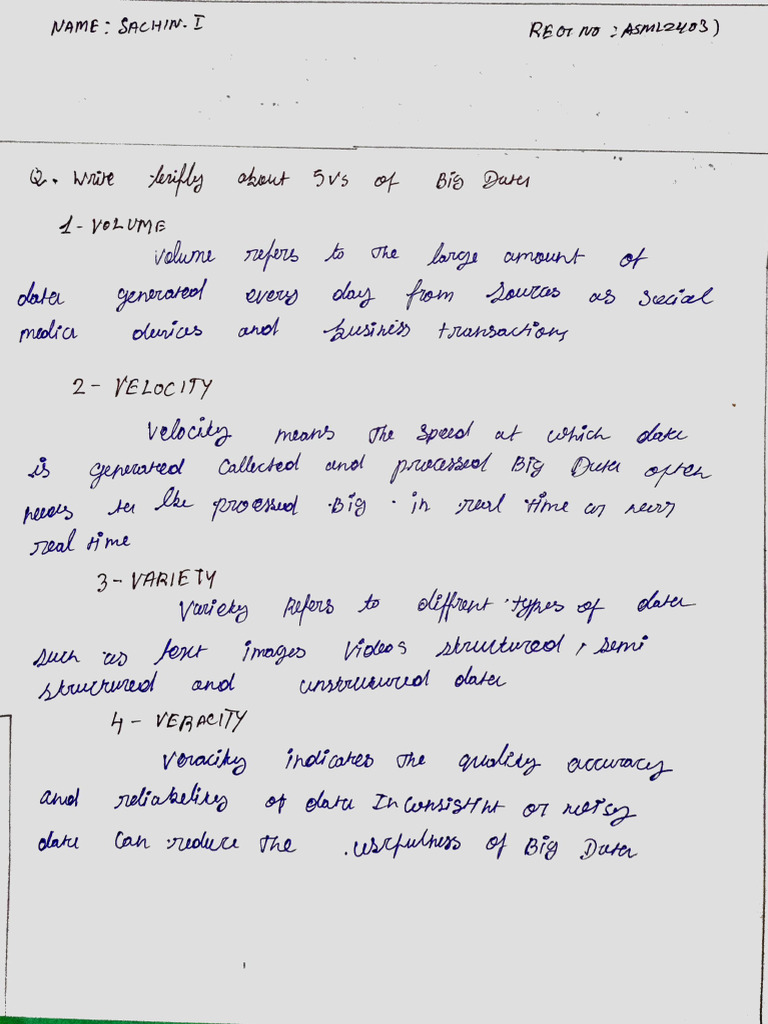 NAME: SACHIN. I
REG NO: ASML2403)
Q. Write brifly about 5Vs of Big Data
1 - VOLUME
Volume refers to the large amount of
data generated every day from sources as social
media devices and business transactions
2 - VELOCITY
Velocity means the speed at which data
is generated collected and processed Big Data often
needs to be processed Big in real time or near
real time
3 - VARIETY
Variety Refers to diffrent types of data
such as text images videos structured, semi
structured and unstructured data
4 - VERACITY
Veracity indicates the quality accuracy
and reliability of data Inconsistint or noisy
data can reduce the usefulness of Big Data